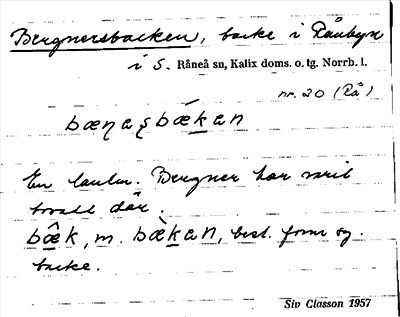 Bergnersbacken, backe i Rånbyn
i S. Råneå sn, Kalix doms. o. tg. Norrb. l.
nr. 20 (Rå)
bæŋaʂbækan
En backe. Bergner har varit
bosatt där.
bæ̂k, m. bæ̀kan, best. form sg.
backe.
Siv Classon 1957